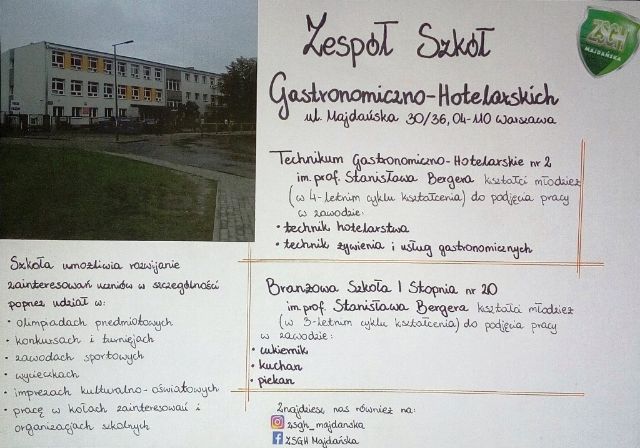 Zespół Szkół
ZSGH
MAJDAŃSKA
Gastronomiczno-Hotelarskich
ul. Majdańska 30/36, 04-110 Warszawa
Technikum Gastronomiczno-Hotelarskie nr 2
im. prof. Stanisława Bergera kształci młodzież
(w 4-letnim cyklu kształcenia) do podjęcia pracy
w zawodzie:
• technik hotelarstwa
• technik żywienia i usług gastronomicznych
Szkoła umożliwia rozwijanie
zainteresowań uczniów w szczególności
poprzez udział w:
• olimpiadach przedmiotowych
• konkursach i turniejach
• zawodach sportowych
• wycieczkach
• imprezach kulturalno-oświatowych
• pracę w kołach zainteresowań i
organizacjach szkolnych
Branżowa Szkoła I Stopnia nr 20
im. prof. Stanisława Bergera kształci młodzież
(w 3-letnim cyklu kształcenia) do podjęcia pracy
w zawodzie:
• cukiernik
• kucharz
• piekarz
Znajdziesz nas również na:
zsgh_majdanska
ZSGH Majdańska